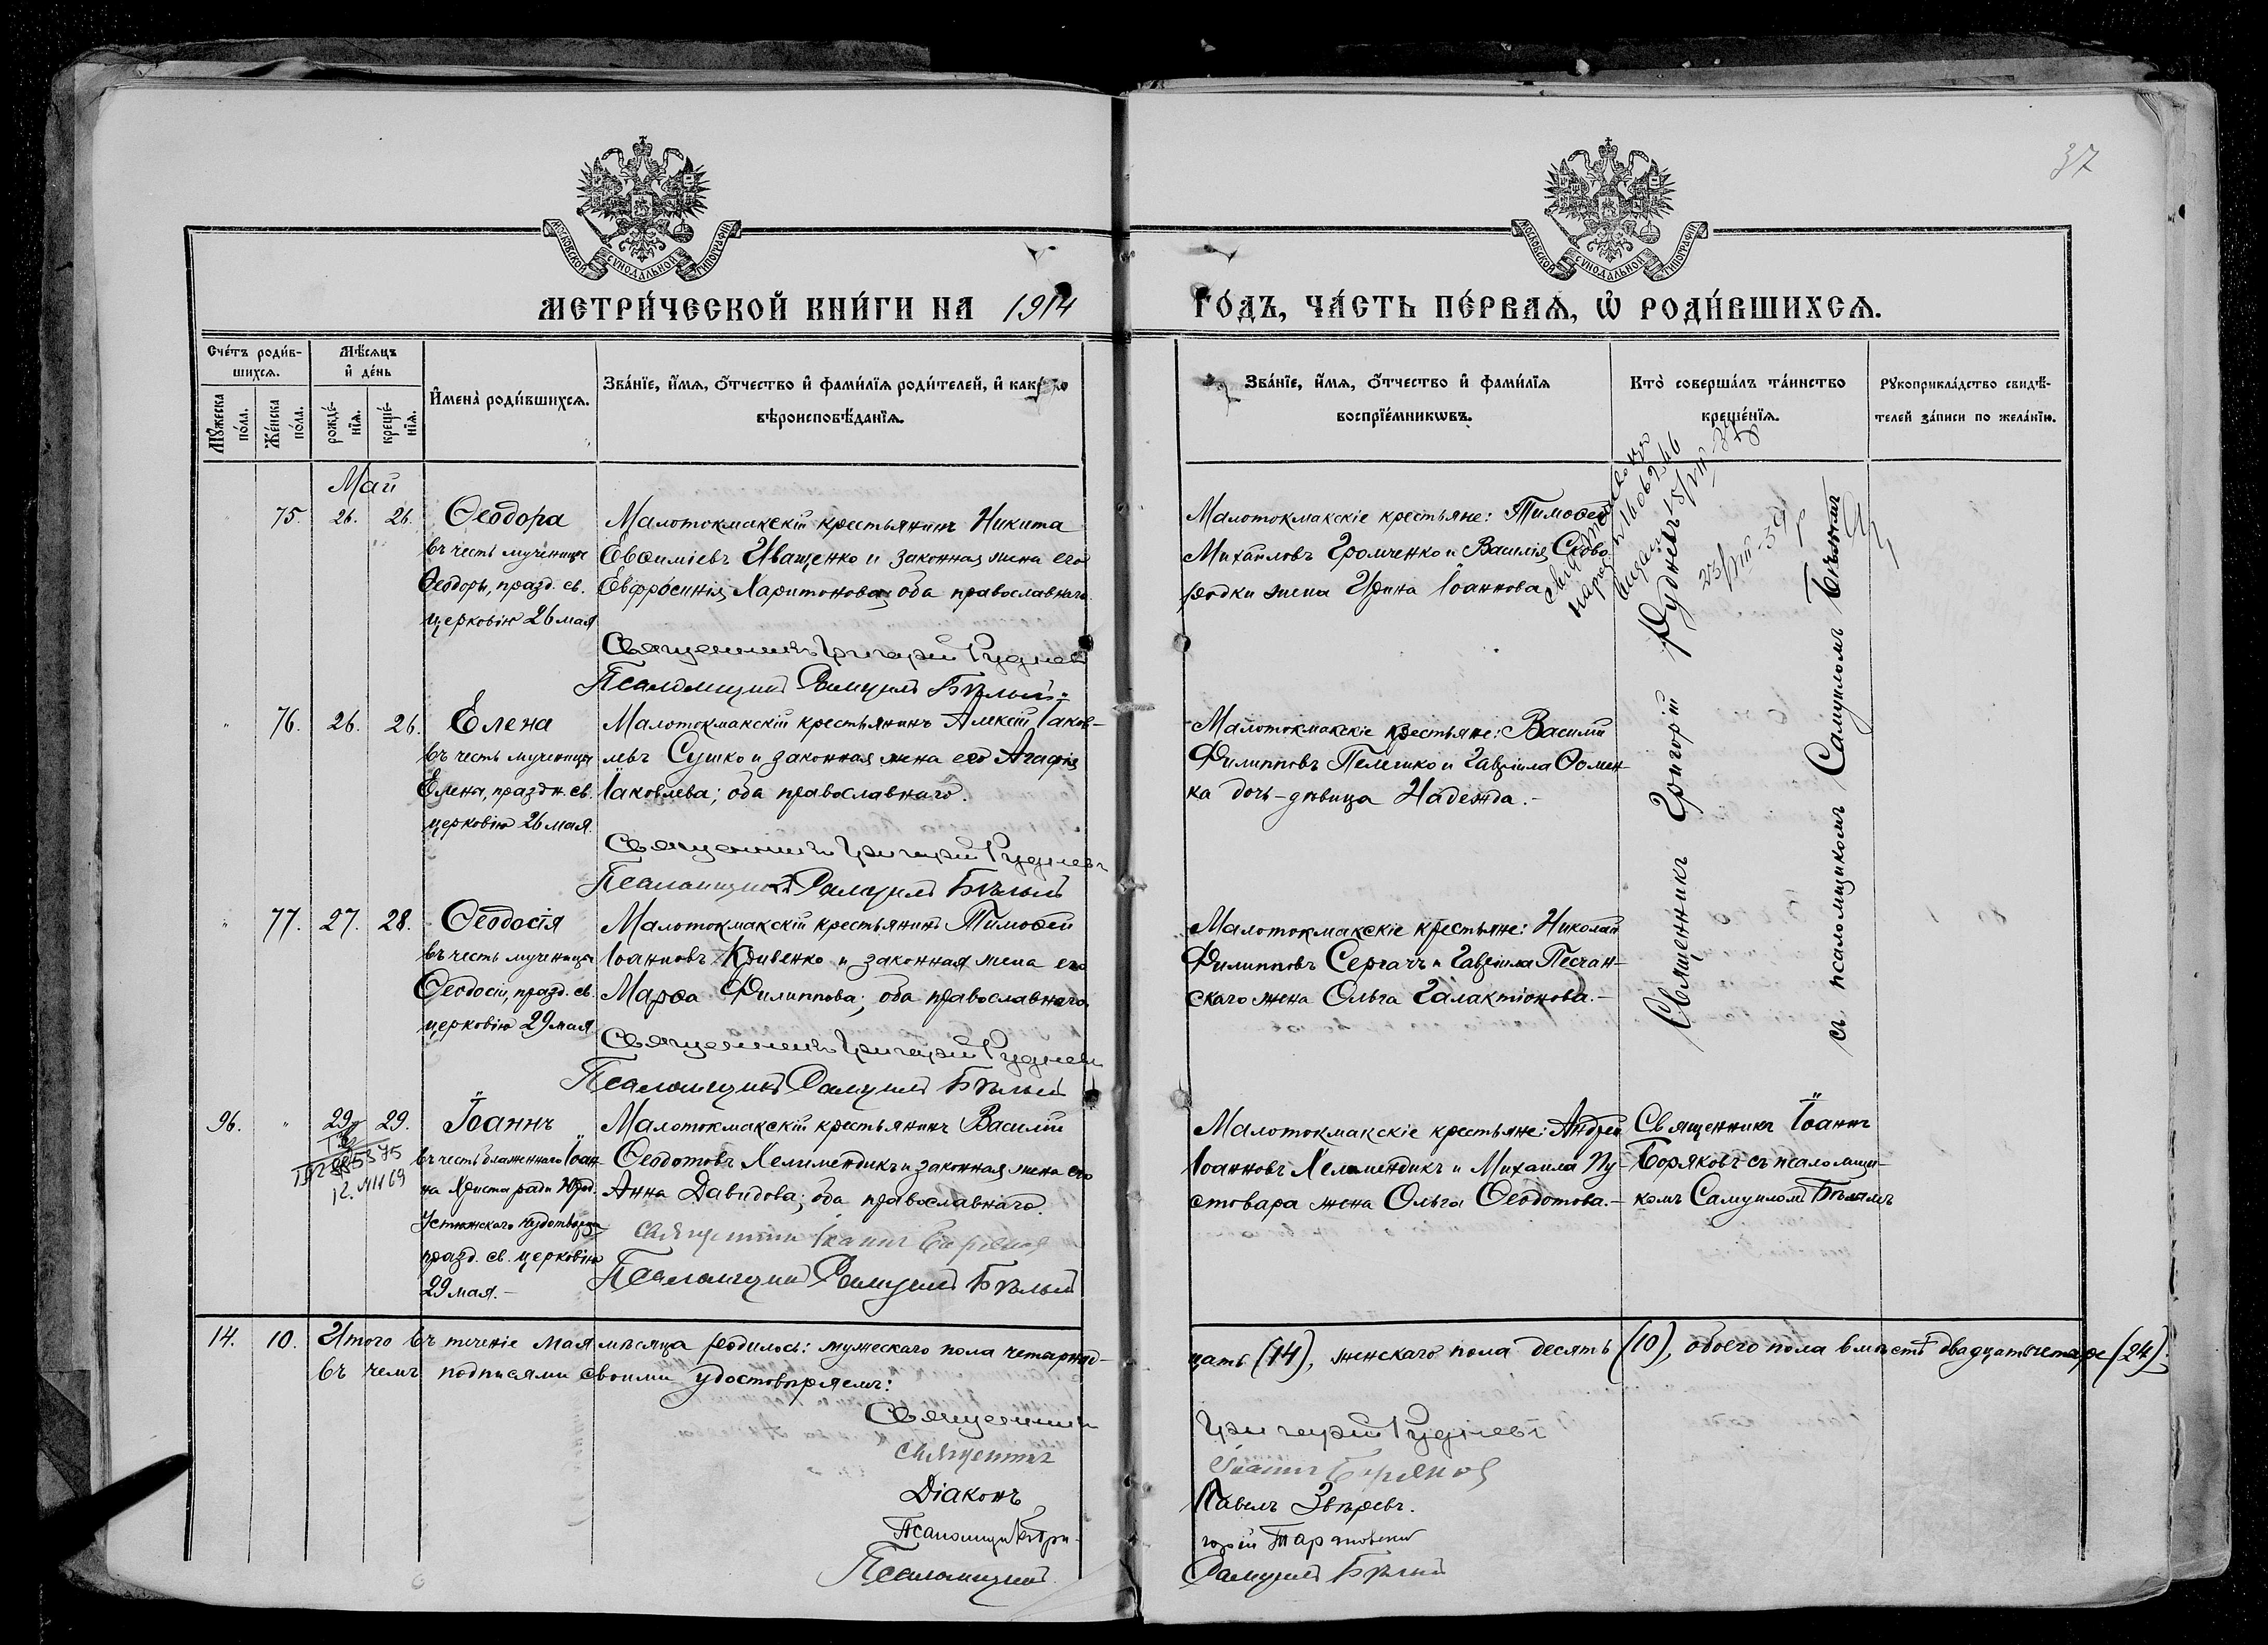 37
МОСКОВСКОЙ СѴНОДАЛЬНОЙ ТИПОГРАФІИ
МОСКОВСКОЙ СѴНОДАЛЬНОЙ ТИПОГРАФІИ
МЕТРИ́ЧЕСКОЙ КНИ́ГИ НА 1914
ГО́ДЪ, ЧА́СТЬ ПЕ́РВАѦ, Ѽ РОДИ́ВШИХСѦ.
Сче́тъ роди́в-
шихсѧ.
Мꙋ́жеска по́ла.
Же́нска по́ла.
Мѣ́сѧцъ
и҆ де́нь
рожде́-
нїѧ.
креще́-
нїѧ.
И҆мена̀ роди́вшихсѧ.
Зва́нїе, и҆́мѧ, ѻ҆́тчество и҆ фами́лїѧ роди́телей, и҆ како́гѡ
вѣроисповѣ́данїѧ.
Зва́нїе, и҆́мѧ, ѻ҆́тчество и҆ фами́лїѧ
воспрїе́мникѡвъ.
Кто̀ соверша́лъ та́инство
креще́нїѧ.
Рꙋкоприкла́дство свидѣ́-
телей за́писи по жела́нїю.
Май
75. 26. 26. Ѳеодора
въ честь мученицы
Ѳеодоры, празд. св.
церковію 26 мая
Малотокмакскій крестьянинъ Никита
Евѳиміевъ Иващенко и законная жена его
Евфросинія Харитонова; оба православнаго.
Священникъ Григорій Рудневъ
Псаломщикъ Самуилъ Бѣлый
Малотокмакскіе крестьяне: Тимоѳей
Михаиловъ Громченко и Василія Сково
родки жена Ирина Іоаннова
76. 26. 26. Елена
въ честь мученицы
Елены, праздн. св.
церковію 26 мая.
Малотокмакскій крестьянинъ Алексій Іаков-
левъ Сушко и законная жена его Агафія
Іаковлева; оба православнаго.
Священникъ Григорій Рудневъ
Псаломщикъ Самуилъ Бѣлый
Малотокмакскіе крестьяне: Василій
Филипповъ Пелешко и Гавріила Ѳомен-
ка дочь-дѣвица Надежда.-
77. 27. 28. Ѳеодосія
въ честь мученицы
Ѳеодосіи, празд. св.
церковію 29 мая
Малотокмакскій крестьянинъ Тимоѳей
Іоанновъ Кривенко и законная жена его
Марѳа Филиппова; оба православнаго.
Священникъ Григорій Рудневъ
Псаломщикъ Самуилъ Бѣлый
Малотокмакскіе крестьяне: Николай
Филипповъ Сергачъ и Гавріила Песчан-
скаго жена Ольга Галактіонова.-
Священникъ Григорій Рудневъ
съ псаломщикомъ Самуиломъ Бѣлымъ
96. 29. 29. Іоаннъ
въ честь блаженнаго Іоан-
на Христа ради Юрод.
Устюжскаго чудотворца
празд. св. церковію
29 мая.-
Малотокмакскій крестьянинъ Василій
Ѳеодотовъ Хелимендикъ и законная жена его
Анна Давидова; оба православнаго.
Священникъ Іоаннъ Боряковъ
Псаломщикъ Самуилъ Бѣлый
Малотокмакскіе крестьяне: Андрей
Іоанновъ Хелимендикъ и Михаила Пу-
стовара жена Ольга Ѳеодотова.-
Священникъ Іоаннъ
Боряковъ съ псаломщи-
комъ Самуиломъ Бѣлымъ
14. 10. Итого въ теченіе мая мѣсяца родилось: мужескаго пола четырнад-
цать (14), женскаго пола десять (10), обоего пола вмѣстѣ двадцать четыре (24).
въ чемъ подписями своими удостовѣряемъ:
Священникъ Григорій Рудневъ
Священникъ Іоаннъ Боряковъ
Діаконъ Павелъ Звѣревъ.
Псаломщикъ Гри-
горій Тарановскій
Псаломщикъ Самуилъ Бѣлый